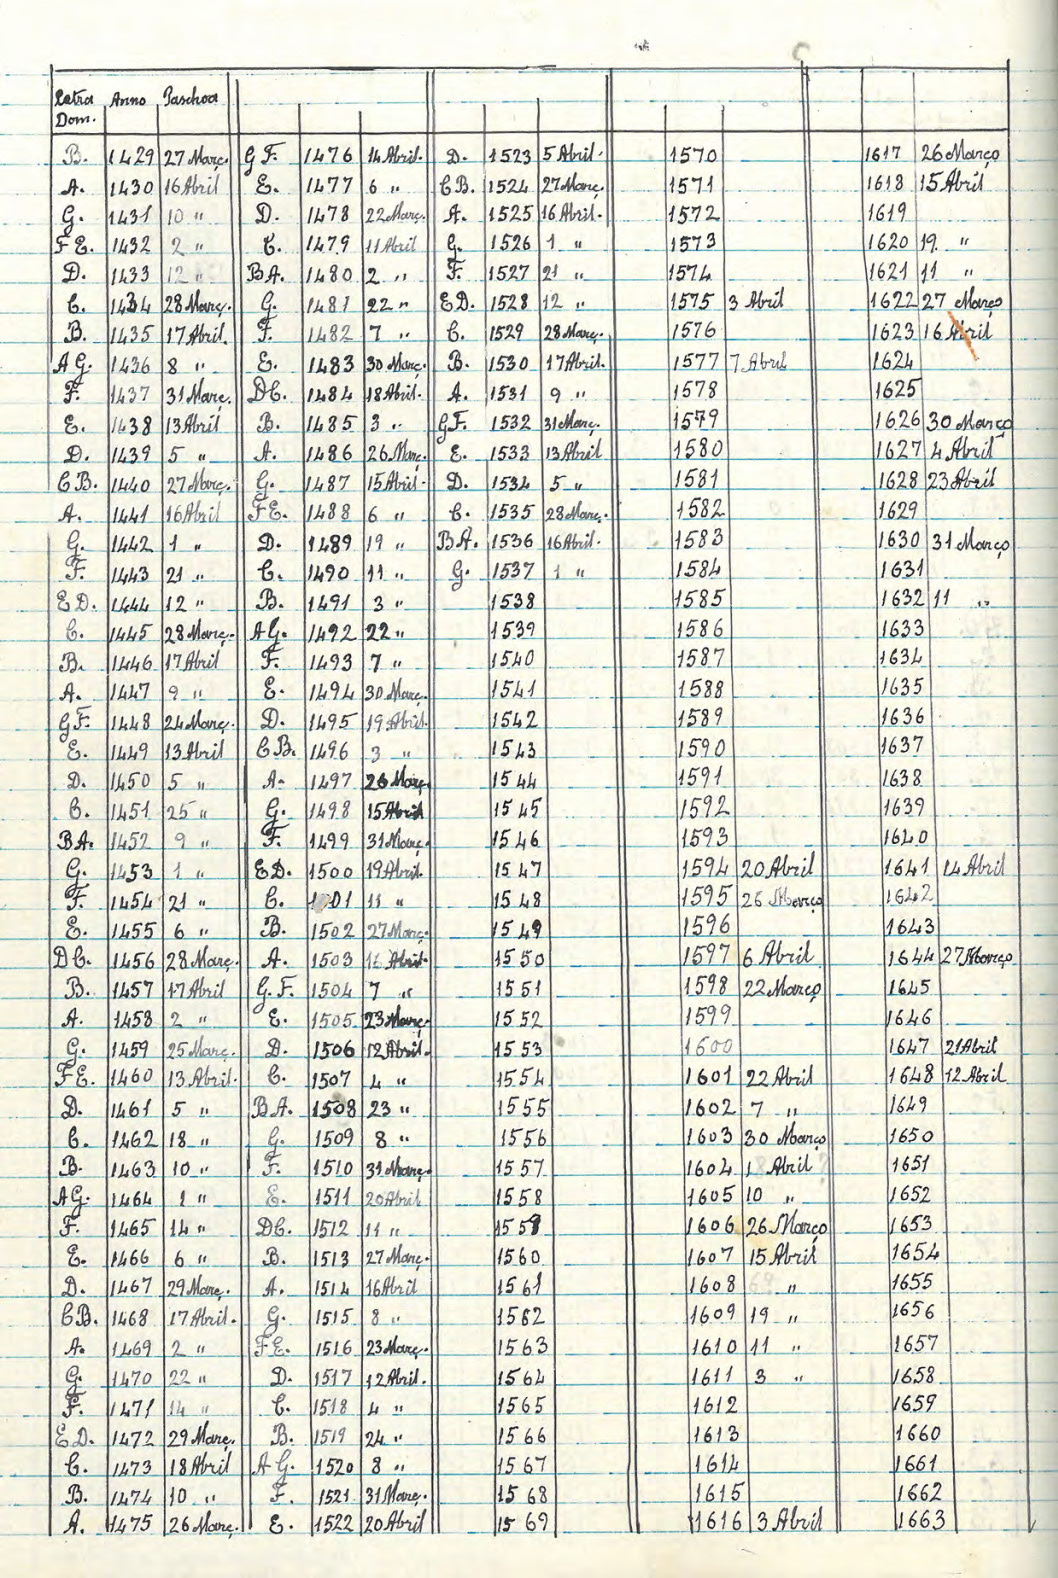 Letra Dom. Anno Paschoa
B. 1429 27 Març. G F. 1476 14 Abril. D. 1523 5 Abril. 1570 1617 26 Março
A. 1430 16 Abril E. 1477 6 " C B. 1524 27 Març. 1571 1618 15 Abril
G. 1431 10 " D. 1478 22 Març. A. 1525 16 Abril. 1572 1619
F E. 1432 2 " C. 1479 11 Abril G. 1526 1 " 1573 1620 19. "
D. 1433 12 " B A. 1480 2 " F. 1527 21 " 1574 1621 11 "
C. 1434 28 Març. G. 1481 22 " E D. 1528 12 " 1575 3 Abril 1622 27 Março
B. 1435 17 Abril. F. 1482 7 " C. 1529 28 Març. 1576 1623 16 Abril
A G. 1436 8 " E. 1483 30 Març. B. 1530 17 Abril. 1577 7 Abril 1624
F. 1437 31 Març. D C. 1484 18 Abril. A. 1531 9 " 1578 1625
E. 1438 13 Abril B. 1485 3 " G F. 1532 31 Març. 1579 1626 30 Março
D. 1439 5 " A. 1486 26 Març. E. 1533 13 Abril 1580 1627 4 Abril
C B. 1440 27 Març. G. 1487 15 Abril. D. 1534 5 " 1581 1628 23 Abril
A. 1441 16 Abril F E. 1488 6 " C. 1535 28 Març. 1582 1629
G. 1442 1 " D. 1489 19 " B A. 1536 16 Abril. 1583 1630 31 Março
F. 1443 21 " C. 1490 11 " G. 1537 1 " 1584 1631
E D. 1444 12 " B. 1491 3 " 1538 1585 1632 11 "
C. 1445 28 Març. A G. 1492 22 " 1539 1586 1633
B. 1446 17 Abril F. 1493 7 " 1540 1587 1634
A. 1447 9 " E. 1494 30 Març. 1541 1588 1635
G F. 1448 24 Març. D. 1495 19 Abril. 1542 1589 1636
E. 1449 13 Abril C B. 1496 3 " 1543 1590 1637
D. 1450 5 " A. 1497 26 Març. 1544 1591 1638
C. 1451 25 " G. 1498 15 Abril 1545 1592 1639
B A. 1452 9 " F. 1499 31 Març. 1546 1593 1640
G. 1453 1 " E D. 1500 19 Abril. 1547 1594 20 Abril 1641 14 Abril
F. 1454 21 " C. 1501 11 " 1548 1595 26 Março 1642
E. 1455 6 " B. 1502 27 Març. 1549 1596 1643
D C. 1456 28 Març. A. 1503 16 Abril. 1550 1597 6 Abril 1644 27 Março
B. 1457 17 Abril G. F. 1504 7 " 1551 1598 22 Março 1645
A. 1458 2 " E. 1505 23 Març. 1552 1599 1646
G. 1459 25 Març. D. 1506 12 Abril. 1553 1600 1647 21 Abril
F E. 1460 13 Abril. C. 1507 4 " 1554 1601 22 Abril 1648 12 Abril
D. 1461 5 " B A. 1508 23 " 1555 1602 7 " 1649
C. 1462 18 " G. 1509 8 " 1556 1603 30 Março 1650
B. 1463 10 " F. 1510 31 Març. 1557 1604 Abril 1651
A G. 1464 1 " E. 1511 20 Abril 1558 1605 10 " 1652
F. 1465 14 " D C. 1512 11 " 1559 1606 26 Março 1653
E. 1466 6 " B. 1513 27 Març. 1560 1607 15 Abril 1654
D. 1467 29 Març. A. 1514 16 Abril 1561 1608 " 1655
C B. 1468 17 Abril. G. 1515 8 " 1562 1609 19 " 1656
A. 1469 2 " F E. 1516 23 Març. 1563 1610 11 " 1657
G. 1470 22 " D. 1517 12 Abril. 1564 1611 3 " 1658
F. 1471 14 " C. 1518 4 " 1565 1612 1659
E D. 1472 29 Març. B. 1519 24 " 1566 1613 1660
C. 1473 18 Abril A G. 1520 8 " 1567 1614 1661
B. 1474 10 " F. 1521 31 Març. 1568 1615 1662
A. 1475 26 Març. E. 1522 20 Abril 1569 1616 3 Abril 1663